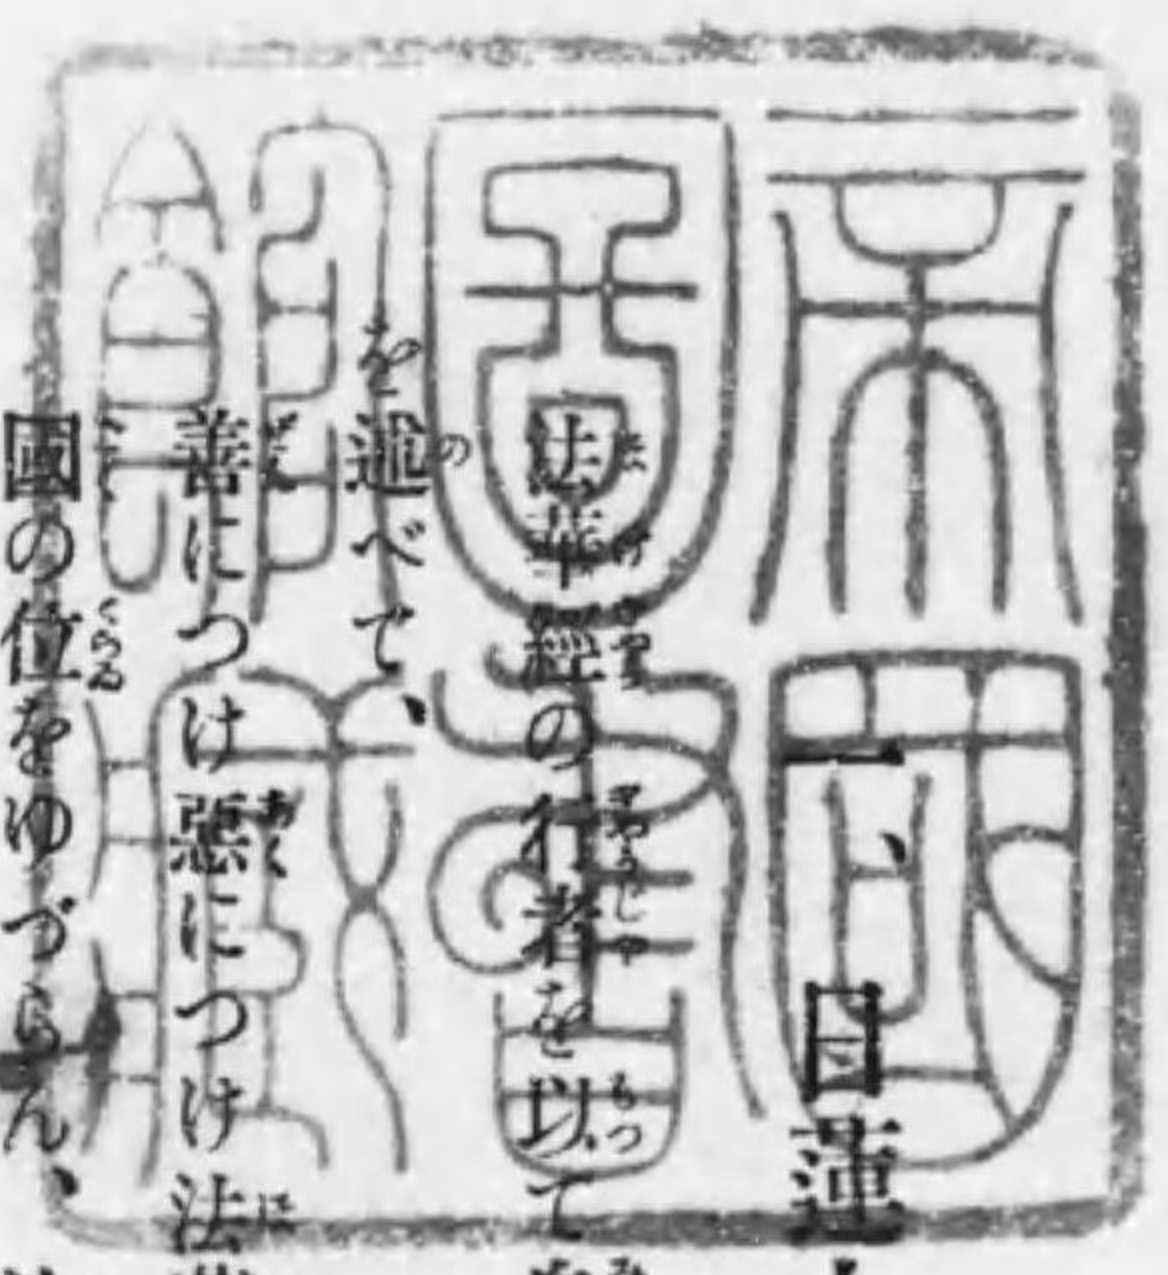 帝國
圖書
館藏
一、日蓮
法華經の行者を以て
を述べて、
善につけ惡につけ法
國の位をゆづらん、